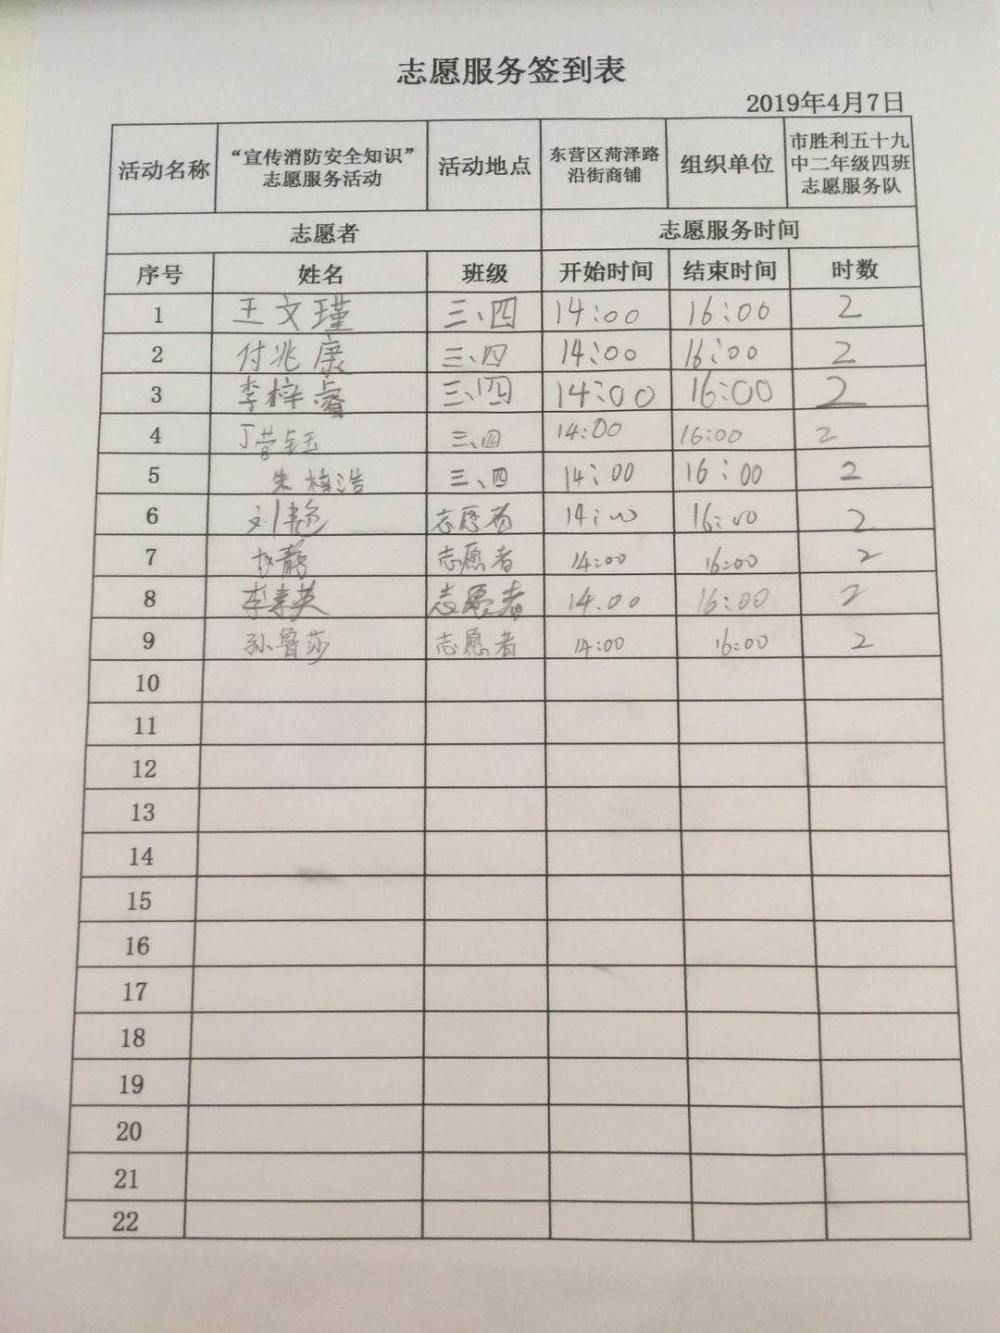 志愿服务签到表
2019年4月7日
活动名称 “宣传消防安全知识”志愿服务活动 活动地点 东营区菏泽路沿街商铺 组织单位 市胜利五十九中二年级四班志愿服务队
志愿者 志愿服务时间
序号 姓名 班级 开始时间 结束时间 时数
1 王文瑾 三、四 14:00 16:00 2
2 付兆康 三、四 14:00 16:00 2
3 李梓睿 三、四 14:00 16:00 2
4 丁 钰 三、四 14:00 16:00 2
5 朱梓浩 三、四 14:00 16:00 2
6 刘艳 志愿者 14:00 16:00 2
7 静 志愿者 14:00 16:00 2
8 李 英 志愿者 14.00 16:00 2
9 孙鲁莎 志愿者 14:00 16:00 2
10
11
12
13
14
15
16
17
18
19
20
21
22